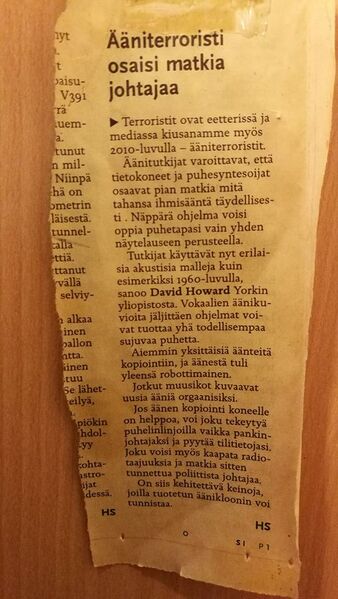 Ääniterroristi
osaisi matkia
johtajaa
▶ Terroristit ovat eetterissä ja
mediassa kiusanamme myös
2010-luvulla – ääniterroristit.
Äänitutkijat varoittavat, että
tietokoneet ja puhesyntesoijat
osaavat pian matkia mitä
tahansa ihmisääntä täydellises-
ti . Näppärä ohjelma voisi
oppia puhetapasi vain yhden
näytelauseen perusteella.
Tutkijat käyttävät nyt erilai-
sia akustisia malleja kuin
esimerkiksi 1960-luvulla,
sanoo David Howard Yorkin
yliopistosta. Vokaalien äániku-
vioita jäljittäen ohjelmat voi-
vat tuottaa yhä todellisempaa
sujuvaa puhetta.
Aiemmin yksittäisiä äänteitä
kopiointiin, ja äänestä tuli
yleensä robottimainen.
Jotkut muusikot kuvaavat
uusia ääniä orgaanisiksi.
Jos äänen kopiointi koneelle
on helppoa, voi joku tekeytyä
puhelinlinjoilla vaikka pankin-
johtajaksi ja pyytää tilitietojasi.
Joku voisi myös kaapata radio-
taajuuksia ja matkia sitten
tunnettua poliittista johtajaa.
On siis kehitettävä keinoja,
joilla tuotetun äänikloonin voi
tunnistaa.
HS
yt
paisu-
V391
rrä
uem-
tunut
n mil-
Niinpä
hä on
ometrin
läisestä.
tunnel-
talla
ettiä.
ttanut
yvällä
selviy-
n alkaa
inen
pallon
ntta.
äinen
tuu
Se lähet-
eilyä,
piökin
ahdol-
yy
kohta-
astro-
ijat
idessä.
HS
S1 P1